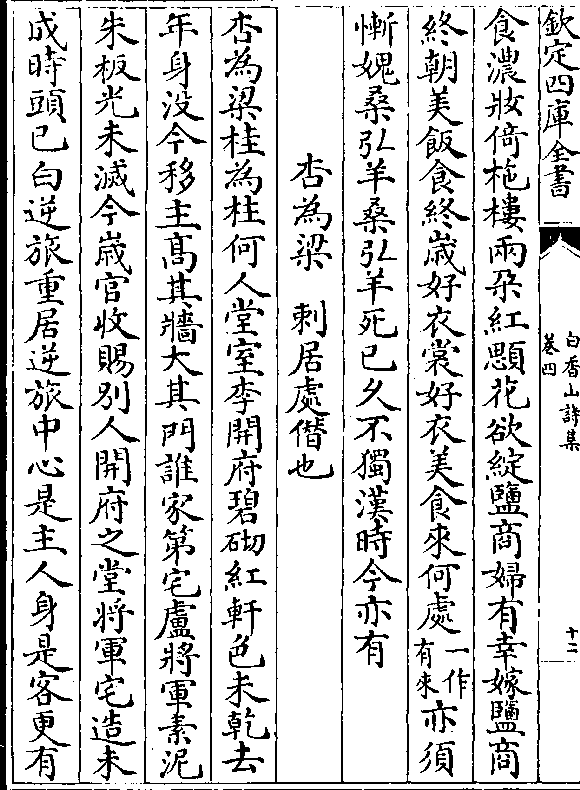 欽定四庫全書
白香山詩集
卷四
十二
食濃妝倚柁樓兩朶紅顋花欲綻鹽商婦有幸嫁鹽商
終朝美飯食終歲好衣裳好衣美食來何處一作有來亦須
慚媿桑弘羊桑弘羊死已久不獨漢時今亦有
杏為梁　刺居處僭也
杏為梁桂為柱何人堂室李開府碧砌紅軒色未乾去
年身没今移主高其牆大其門誰家第宅盧將軍素泥
朱板光未滅今歲官收賜別人開府之堂將軍宅造未
成時頭已白逆旅重居逆旅中心是主人身是客更有